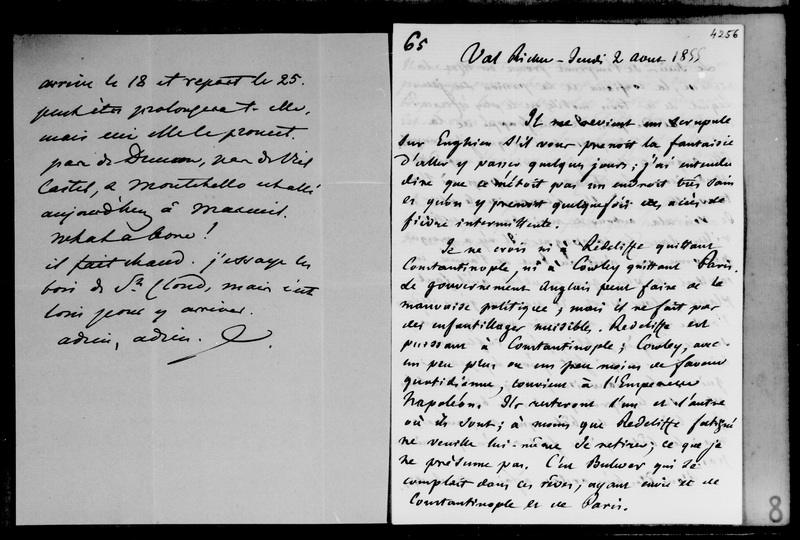 arrive le 18 et repart le 25.
peut être prolongera t-elle,
mais
pas de Duncan, pas de Viel
Castel, Montebello est allé
aujourd'hui à Mareuil.
What a bore!
il fait chaud. j'essaye les
bois de St Cloud, mais c'est
loin pour y arriver.
adieu, adieu.
65
4256
Val Richer - Jeudi 2 Aout 1855
Il me revient un scrupule
sur Enghien s'il vous prenoit la fantaisie
d'aller y passer quelques jours; j'ai entendu
dire que ce n'étoit pas un endroit très sain
et qu'on y prenoit quelquefois des accès de
fièvre intermittente.
Je ne crois ni à Redcliffe quittant
Constantinople, ni à Cowley quittant Paris.
Le gouvernement Anglais peut faire de la
mauvaise politique; mais il ne fait pas
des enfantillages nuisibles. Redcliffe est
puissant à Constantinople; Cowley, avec
un peu plus ou un peu moins de faveur
quotidienne, convient à l'Empereur
Napoléon. Ils resteront l'un et l'autre
où ils sont; à moins que Redcliffe fatigué
ne veuille lui-même se retirer; ce que je
ne présume pas. C'est Bulwer qui se
complait dans ces rêves, ayant envie et de
Constantinople et de Paris.
8